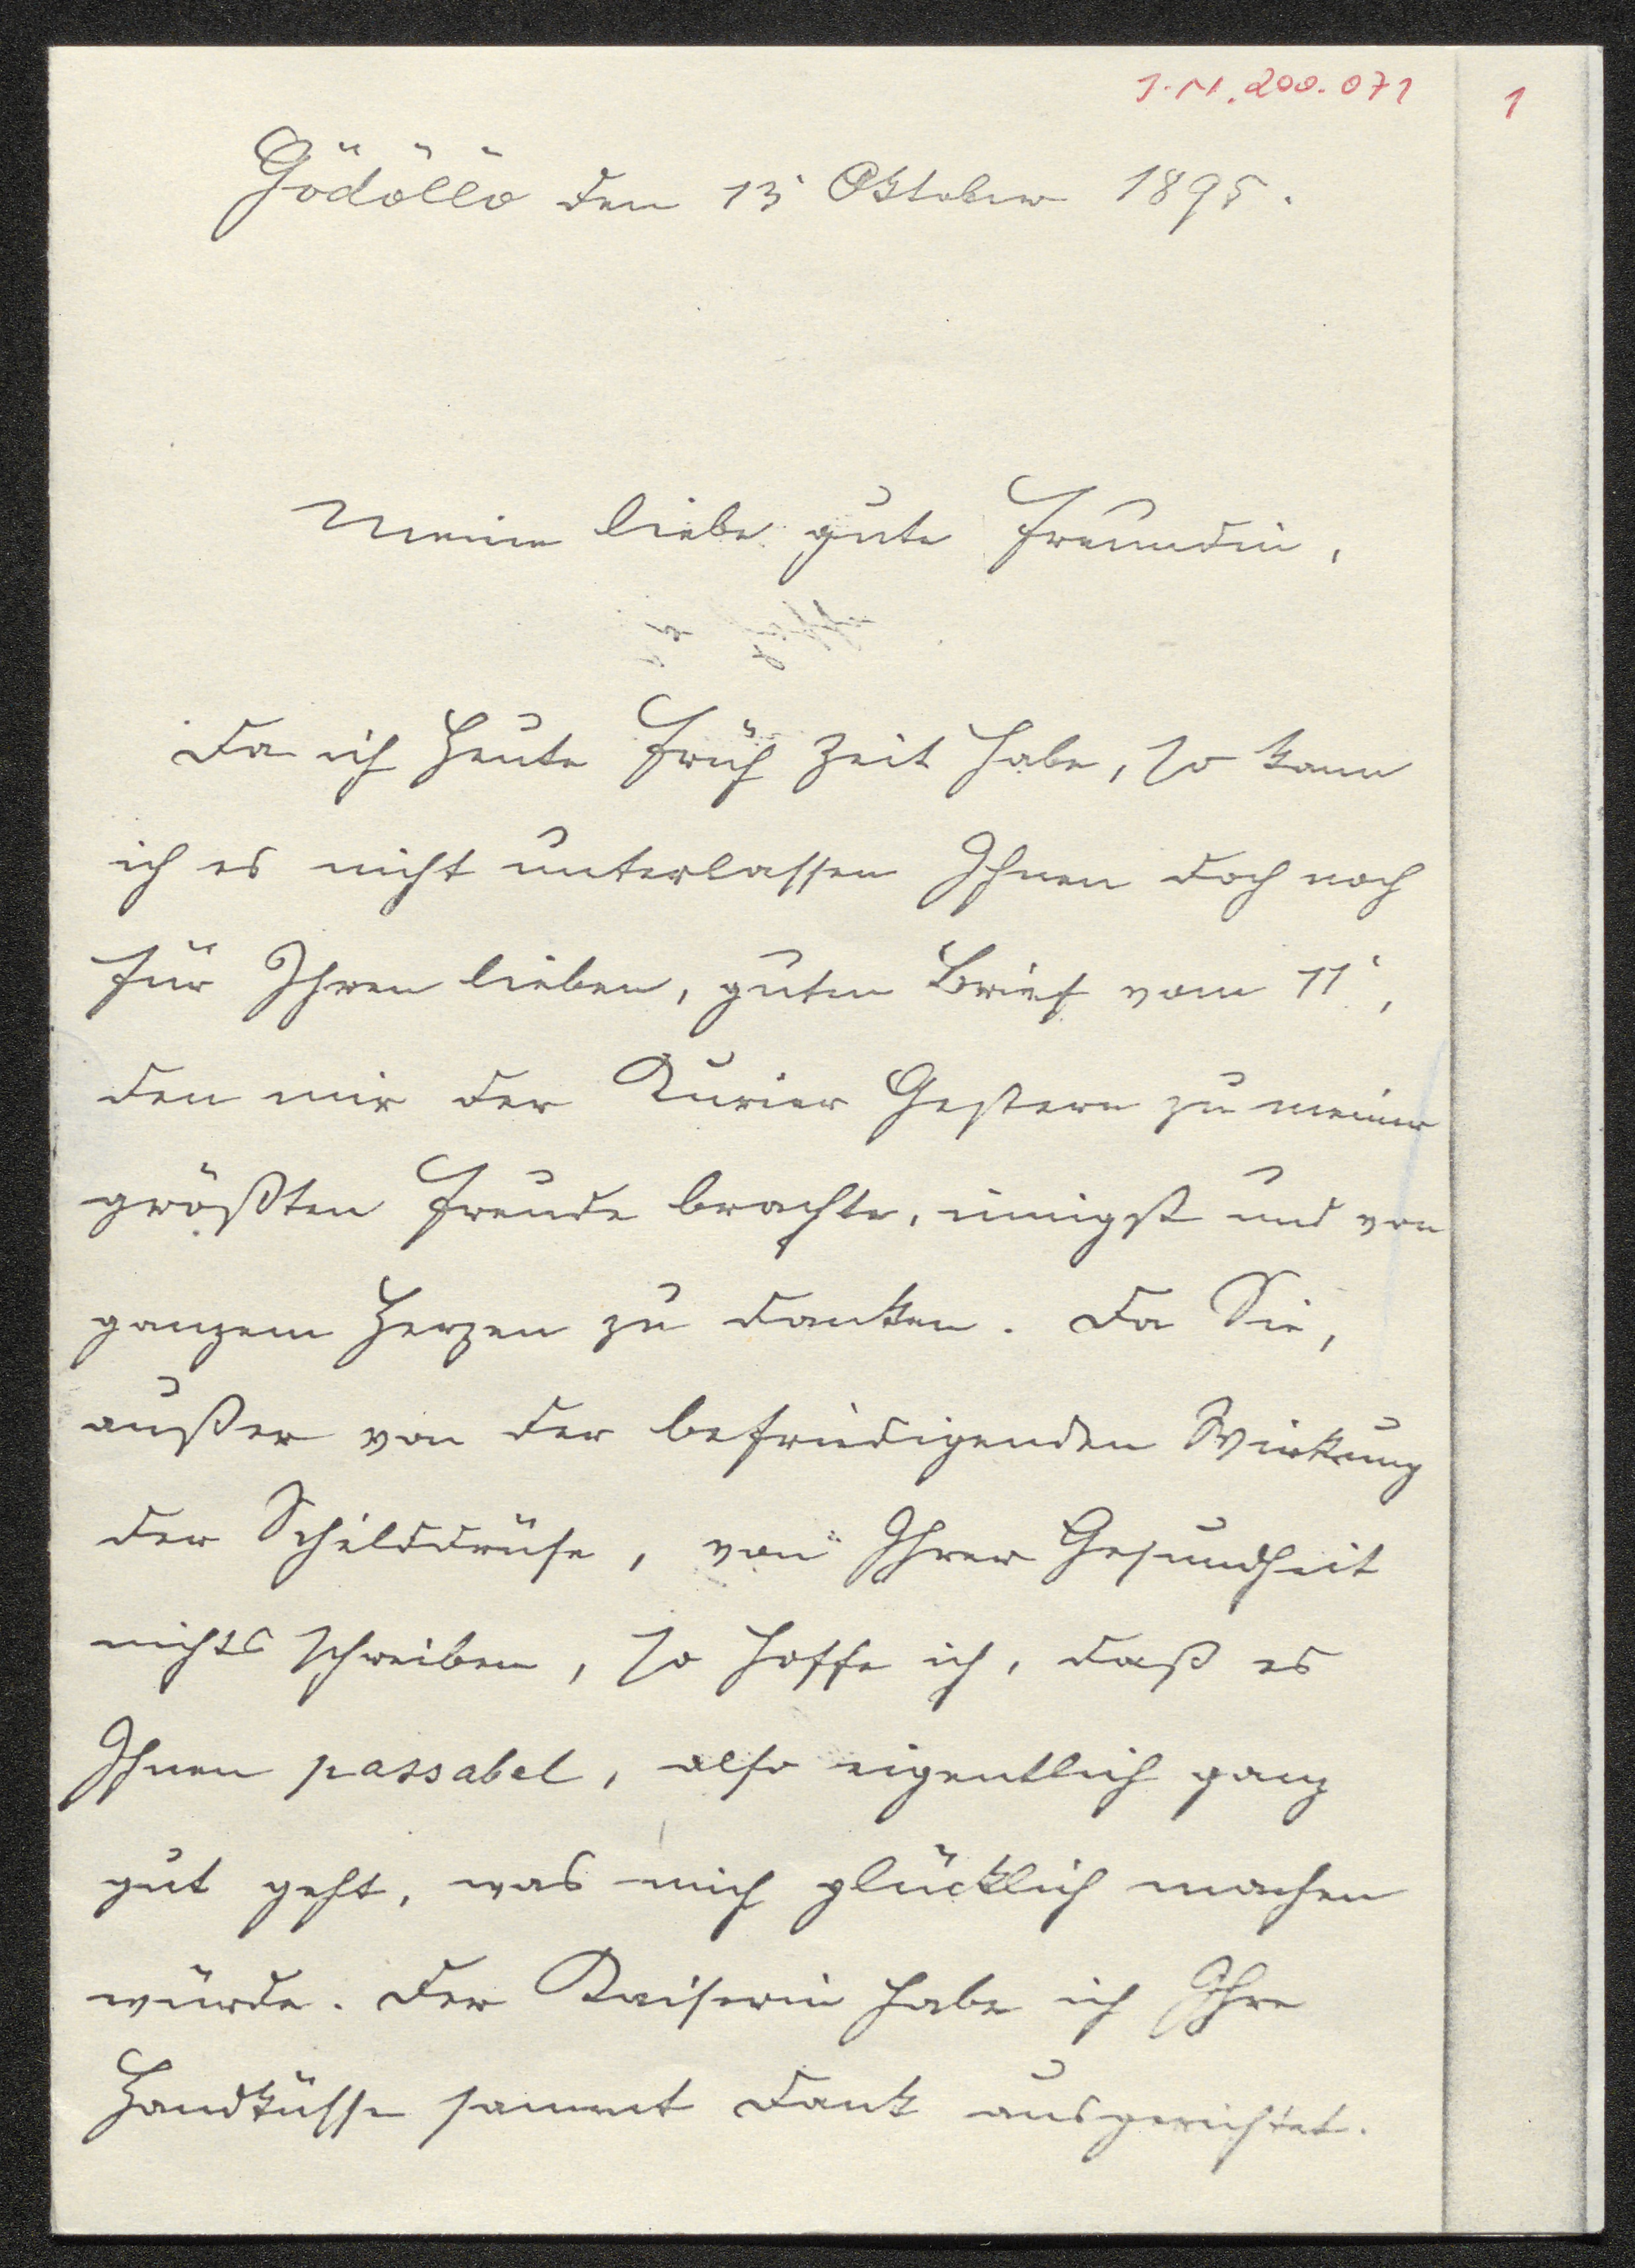 J.N. 200.071
1
Gödöllö den 13' Oktober 1895.
Meine liebe gute Freundin,
Da ich Heute Früh Zeit habe, so kann
ich es nicht unterlassen Ihnen doch noch
für Ihren lieben, guten Brief vom 11',
den mir der Kurier Gestern zu meiner
größten Freude brachte, innigst und von
ganzem Herzen zu danken. Da Sie,
außer von der befriedigenden Wirkung
der Schilddrüse, von Ihrer Gesundheit
nichts schreiben, so hoffe ich, daß es
Ihnen passabel, also eigentlich ganz
gut geht, was mich glücklich machen
würde. Der Kaiserin habe ich Ihre
Handküsse sammt Dank ausgerichtet.